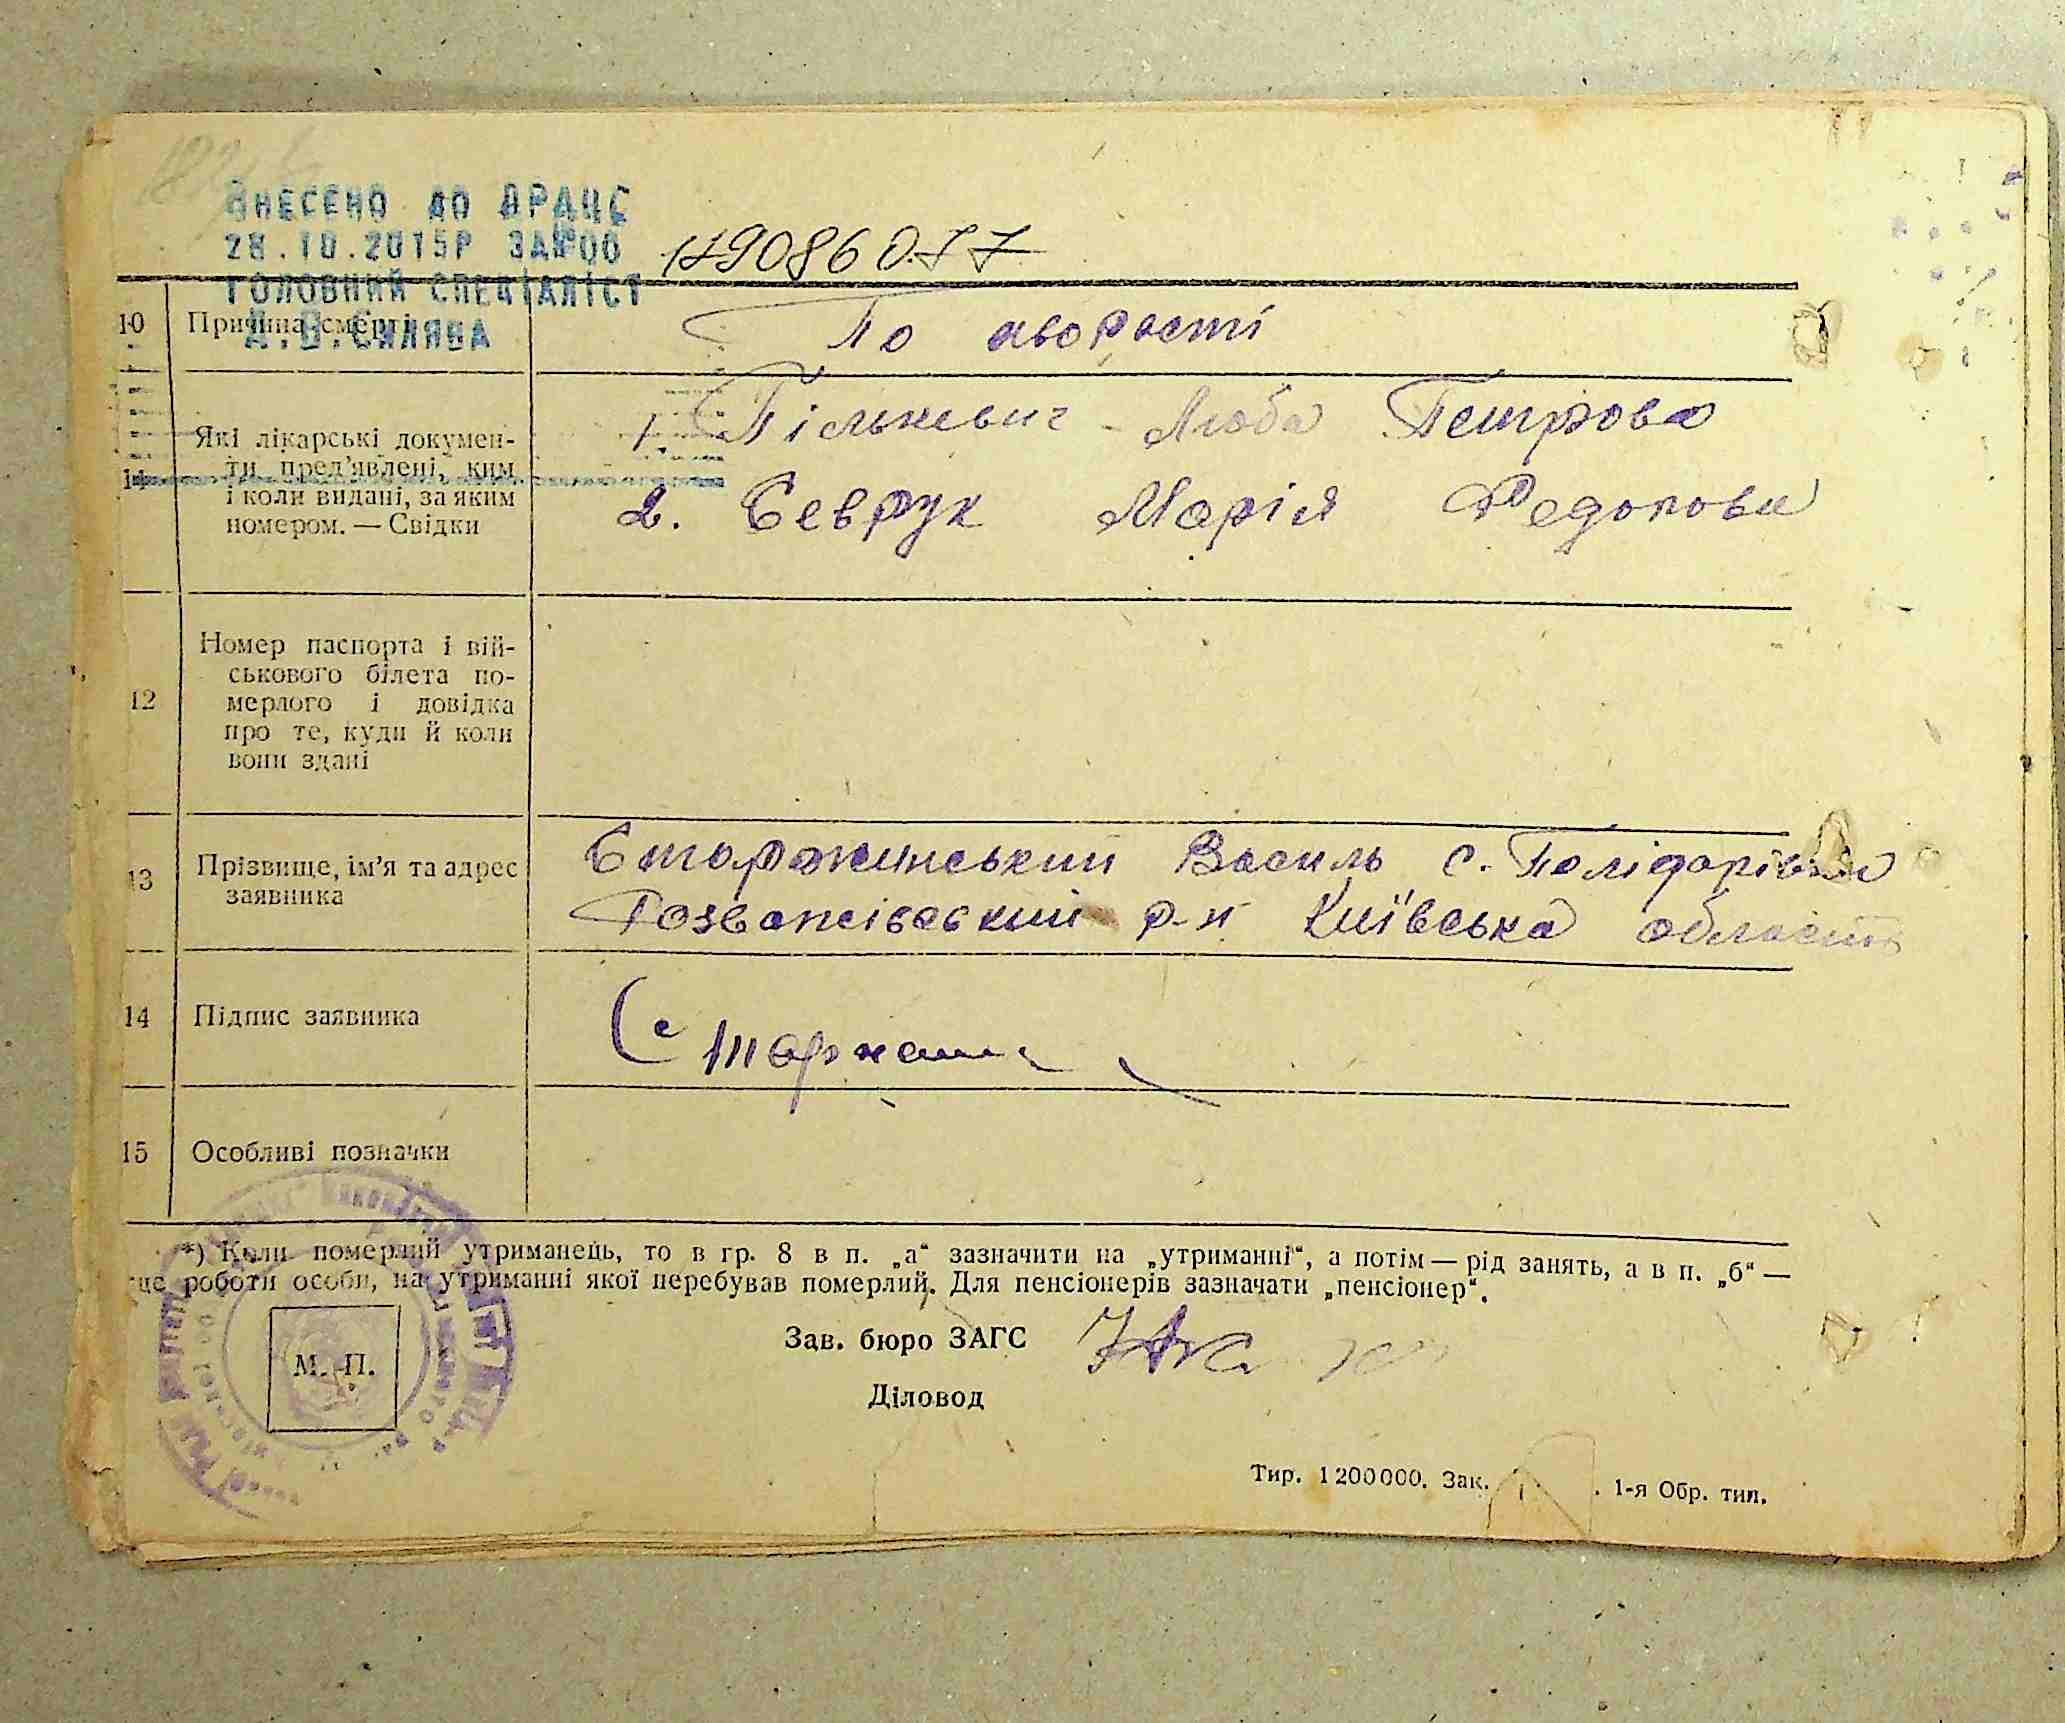 ВНЕСЕНО ДО ДРАЦС
28.10.2015Р ЗА№00 17908607 7
ГОЛОВНИЙ СПЕЦІАЛІСТ
10 Причина смерті По хворості
11 Які лікарські докумен-
ти пред'явлені, ким
і коли видані, за яким
номером. — Свідки
1. Люба Петрова
2. Севрук Марія Федорова
12 Номер паспорта і вій-
ськового білета по-
мерлого і довідка
про те, куди й коли
вони здані
13 Прізвище, ім'я та адрес
заявника
Сторожинський Василь с. Полідарівка
Розважівський р-н Київська область
14 Підпис заявника
15 Особливі позначки
*) Коли померлий утриманець, то в гр. 8 в п. „а“ зазначити на „утриманні“, а потім — рід занять, а в п. „б“ —
це роботи особи, на утриманні якої перебував померлий. Для пенсіонерів зазначати „пенсіонер“.
М. П.
Зав. бюро ЗАГС
Діловод
Тир. 1200000. Зак. . 1-я Обр. тип.